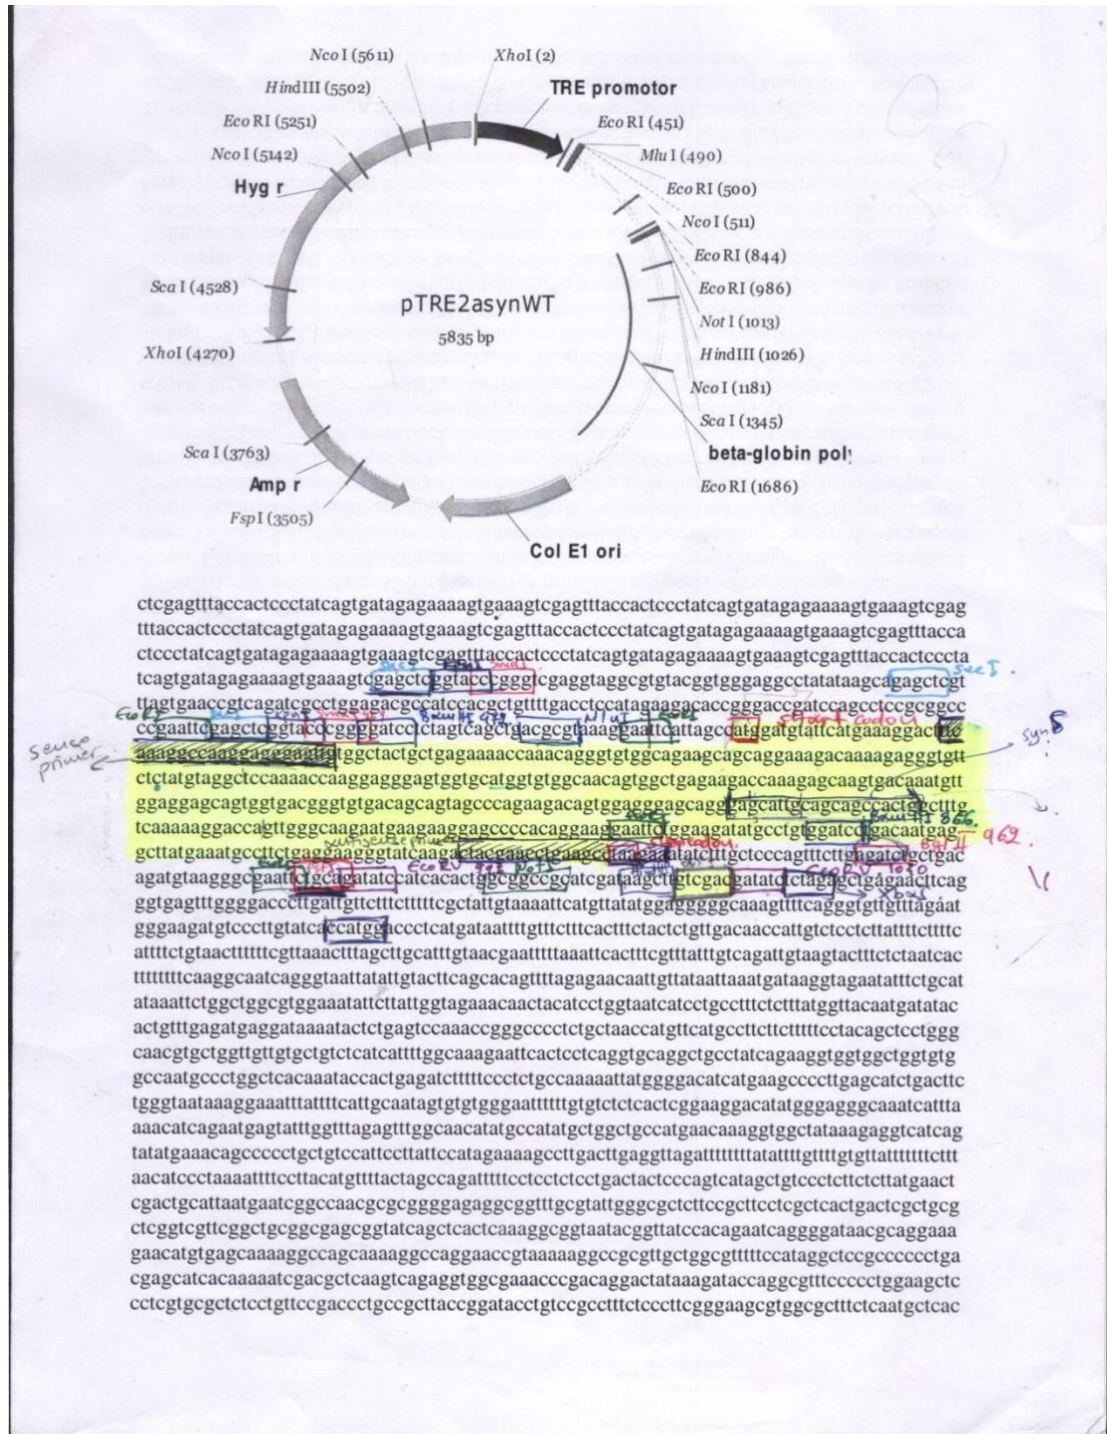 NcoI (5611)
XhoI (2)
HindIII (5502)
TRE promotor
EcoRI (5251)
EcoRI (451)
NcoI (5142)
MluI (490)
Hyg r
EcoRI (500)
NcoI (511)
EcoRI (844)
ScaI (4528)
pTRE2asynWT
EcoRI (986)
5835 bp
NotI (1013)
XhoI (4270)
HindIII (1026)
NcoI (1181)
ScaI (1345)
ScaI (3763)
beta-globin poly
Amp r
EcoRI (1686)
FspI (3505)
Col E1 ori
ctcgagtttaccactccctatcagtgatagagaaaagtgaaagtcgagtttaccactccctatcagtgatagagaaaagtgaaagtcgag
tttaccactccctatcagtgatagagaaaagtgaaagtcgagtttaccactccctatcagtgatagagaaaagtgaaagtcgagtttacca
ctccctatcagtgatagagaaaagtgaaagtcgagtttaccactccctatcagtgatagagaaaagtgaaagtcgagtttaccactcccta
SacI KpnI SmaI SacI
tcagtgatagagaaaagtgaaagtcgagctcggtacccggggtcgaggtaggcgtgtacggtgggaggcctatataagcagagctcgt
ttagtgaaccgtcagatcgcctggagacgccatccacgctgttttgacctccatagaagacaccgggaccgatccagcctccgcggcc
EcoRI SacI KpnI SmaI BamHI 472 MluI EcoRI start codon
ccgaattcgagctcggtacccggggatcctctagtcagctgacgcgtaaaggaattcattagccatggatgtattcatgaaaggactttc
sense primer
syn
aaaggccaaggagggagttgtggctgctgctgagaaaaccaaacagggtgtggcagaagcagcaggaaagacaaaagagggtgtt
ctctatgtaggctccaaaaccaaggagggagtggtgcatggtgtggcaacagtggctgagaagaccaaagagcaagtgacaaatgtt
ggaggagcagtggtgacgggtgtgacagcagtagcccagaagacagtggagggagcagggagcattgcagcagccactggctttg
EcoRI BamHI 866
tcaaaaaggaccagttgggcaagaatgaagaaggagccccacaggaaggaattctggaagatatgcctgtggatcctgacaatgag
antisense primer stop codon BglII 962
gcttatgaaatgccttctgaggaagggtatcaagactacgaacctgaagcctaagaaatatctttgctcccagtttcttgagatctgctgac
EcoRI PstI EcoRV 992 NotI EcoRV 1040
agatgtaagggcgaattctgcagatatccatcacactggcggccgcatcgataagcttgtcgacgatatctctagagctgagaacttcag
XbaI
ggtgagtttggggacccttgattgttctttctttttcgctattgtaaaattcatgttatatggagggggcaaagttttcagggtgttgtttagaat
gggaagatgtcccttgtatcaccatggaccctcatgataattttgtttctttcactttctactctgttgacaaccattgtctcctcttattttcttttc
attttctgtaactttttcgttaaactttagcttgcatttgtaacgaatttttaaattcacttttgtttatttgtcagattgtaagtactttctctaatcac
ttttttttcaaggcaatcagggtaattatattgtacttcagcacagttttagagaacaattgttataattaaatgataaggtagaatatttctgcat
ataaattctggctggcgtggaaatattcttattggtagaaacaactacatcctggtaatcatcctgcctttctctttatggttacaatgatatac
actgtttgagatgaggataaaatactctgagtccaaaccgggcccctctgctaaccatgttcatgccttcttctttttcctacagctcctgggg
caacgtgctggttgttgtgctgtctcatcattttggcaaagaattcactcctcaggtgcaggctgcctatcagaaggtggtggctggtgtg
gccaatgccctggctcacaaataccactgagatctttttccctctgccaaaaattatggggacatcatgaagccccttgagcatctgacttc
tgggtaataaaggaaatttattttcattgcaatagtgtgtgggaattttttgtgtctctcactcggaaggacatatgggagggcaaatcattta
aaacatcagaatgagtatttggtttagagtttggcaacatatgccatatgctggctgccatgaacaaaggtggctataaagaggtcatcag
tatatgaaacagccccctgctgtccattccttattccatagaaaagccttgacttgaggttagattttttttatattttgttttgtgttatttttttcttt
aacatccctaaaattttccttacatgttttactagccagatttttcctcctctcctgactactcccagtcatagctgtccctcttctcttatgaact
cgactgcattaatgaatcggccaacgcgcggggagaggcggtttgcgtattgggcgctcttccgcttcctcgctcactgactcgctgcg
ctcggtcgttcggctgcggcgagcggtatcagctcactcaaaggcggtaatacggttatccacagaatcaggggataacgcaggaaa
gaacatgtgagcaaaaggccagcaaaaggccaggaaccgtaaaaaggccgcgttgctggcgtttttccataggctccgcccccctga
cgagcatcacaaaaatcgacgctcaagtcagaggtggcgaaacccgacaggactataaagataccaggcgtttccccctggaagctc
cctcgtgcgctctcctgttccgaccctgccgcttaccggatacctgtccgcctttctcccttcgggaagcgtggcgctttctcaatgctcac